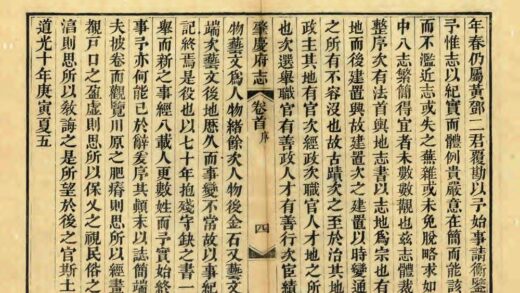 年春仍屬黃鄧二君覆勘以予始事請衡鑒
予惟志以紀實而體例貴嚴意在簡而能該
而不濫近志或失之蕪雜或未免脫略求如
中八志繁簡得宜者未數數觀也茲志體裁
整序次有法首輿地志書以志地為宗也有
地而後建置興故建置次之建置以時變通
之所有不容沒也故古蹟次之至於治其地
政主其地有官次經政次職官人才地之所
也次選舉職官有善政人才有善行次宦績
肇慶府志 卷首 序 四
人物藝文爲人物緒餘次人物後金石又藝文
端次藝文後地歷久而事變不常故以事紀
記終焉是役也以七十年抱殘守缺之書一
舉而新之事經八載人更數姓而予實始終
事予亦何能已於辭爰序其顛末以誌簡端
夫披卷而觀覽川原之肥瘠則思所以經畫
觀戶口之盈虛則思所以保乂之視民俗之
湻則思所以敎誨之是所望於後之官斯土
道光十年庚寅夏五